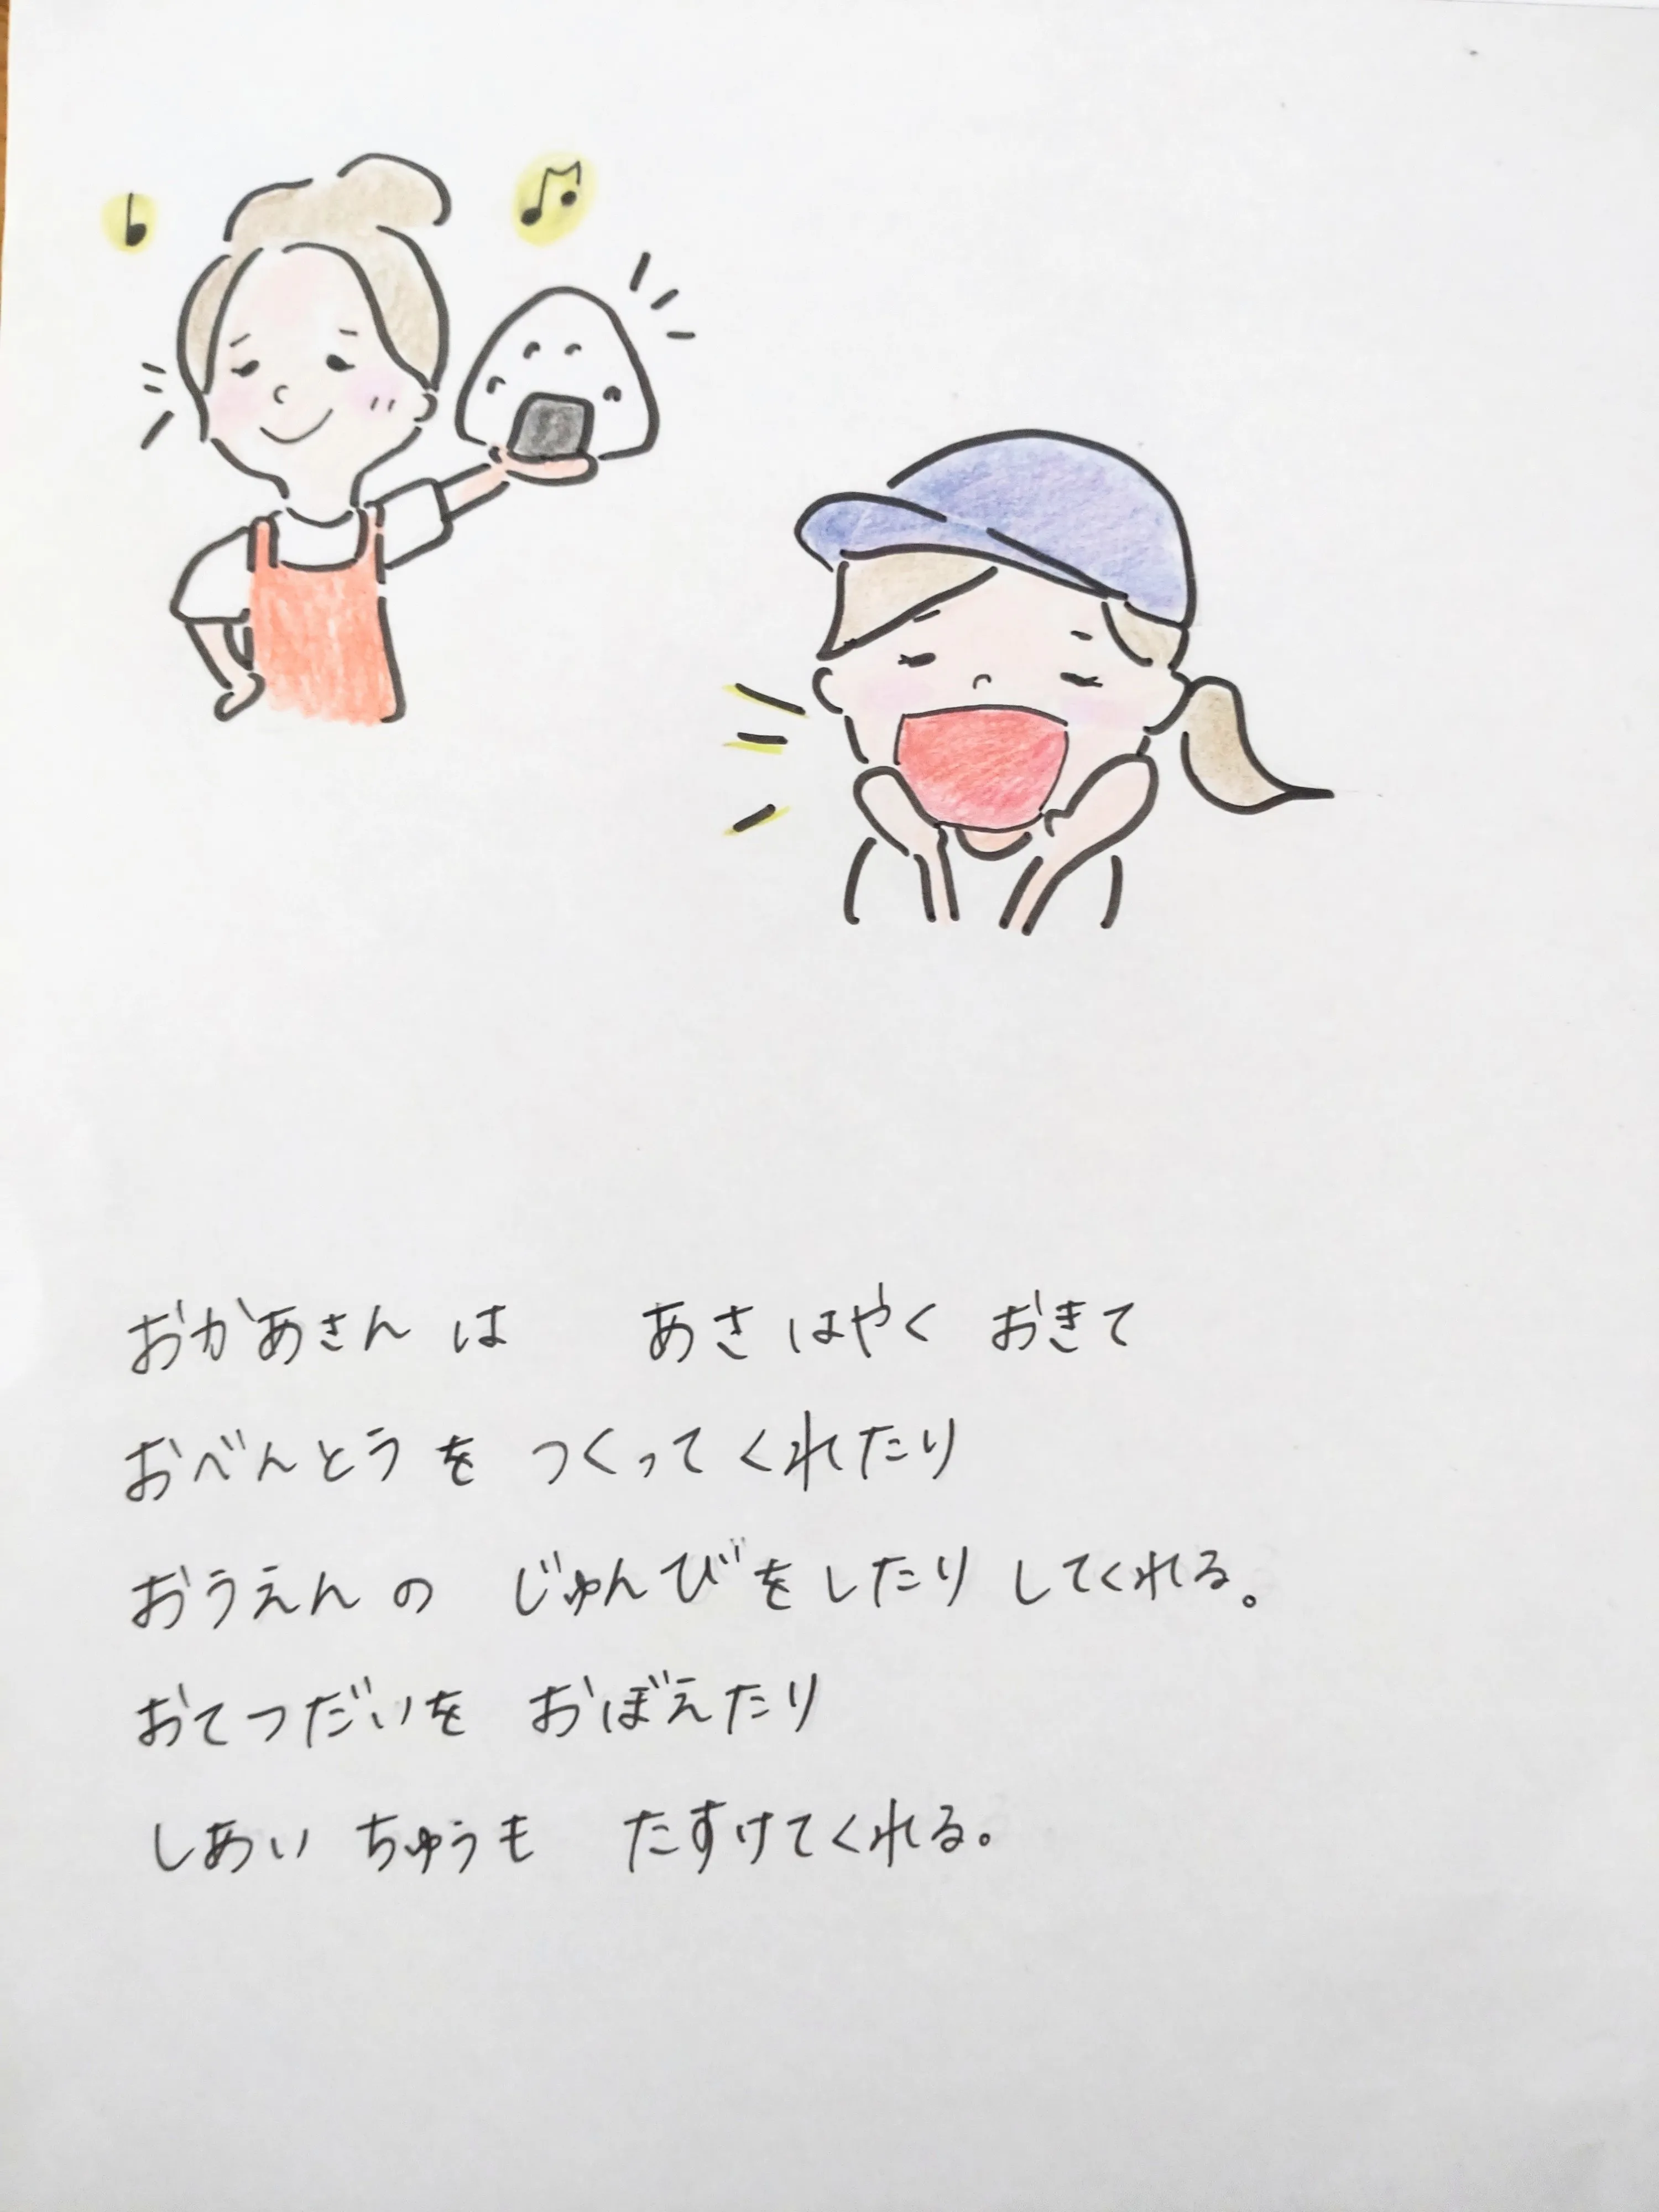 おかあさん は　あさ はやく おきて
おべんとう を つくって くれたり
おうえん の じゅんび を したり してくれる。
おてつだいを おぼえたり
しあい ちゅうも たすけてくれる。